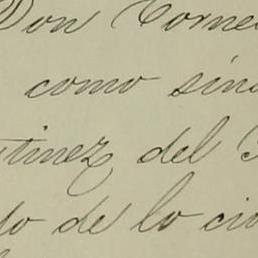 Don Corne
como sin
tinez del
do de lo ci